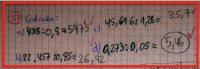 37 Calcula:
a) 438:0,8=547,5 c) 45,696:1,28= 35,7
b) 22,457:0,85= 26,42 d) 0,273:0,05= 5,46